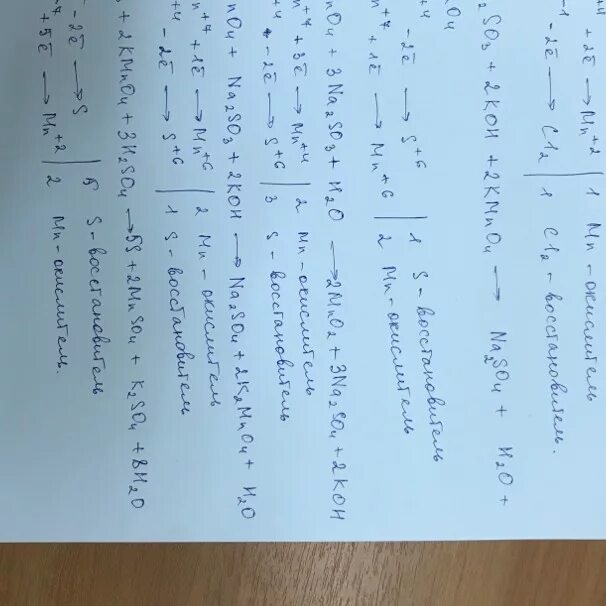 n⁺⁴ + 2ē → Mn⁺² | 1 Mn – окислитель
⁻¹ – 2ē → Cl₂ | 1 Cl₂ – восстановитель.
₂SO₃ + 2KOH + 2KMnO₄ → Na₂SO₄ + H₂O +
nO₄
⁺⁴ – 2ē → S⁺⁶ | 1 S – восстановитель
n⁺⁷ + 1ē → Mn⁺⁶ | 2 Mn – окислитель
nO₄ + 3Na₂SO₃ + H₂O → 2MnO₂ + 3Na₂SO₄ + 2KOH
n⁺⁷ + 3ē → Mn⁺⁴ | 2 Mn – окислитель
⁺⁴ – 2ē → S⁺⁶ | 3 S – восстановитель
nO₄ + Na₂SO₃ + 2KOH → Na₂SO₄ + 2K₂MnO₄ + H₂O
n⁺⁷ + 1ē → Mn⁺⁶ | 2 Mn – окислитель
⁺⁴ – 2ē → S⁺⁶ | 1 S – восстановитель
+ 2KMnO₄ + 3H₂SO₄ → 5S + 2MnSO₄ + K₂SO₄ + 8H₂O
– 2ē → S | 5 S – восстановитель
⁺⁷ + 5ē → Mn⁺² | 2 Mn – окислитель.